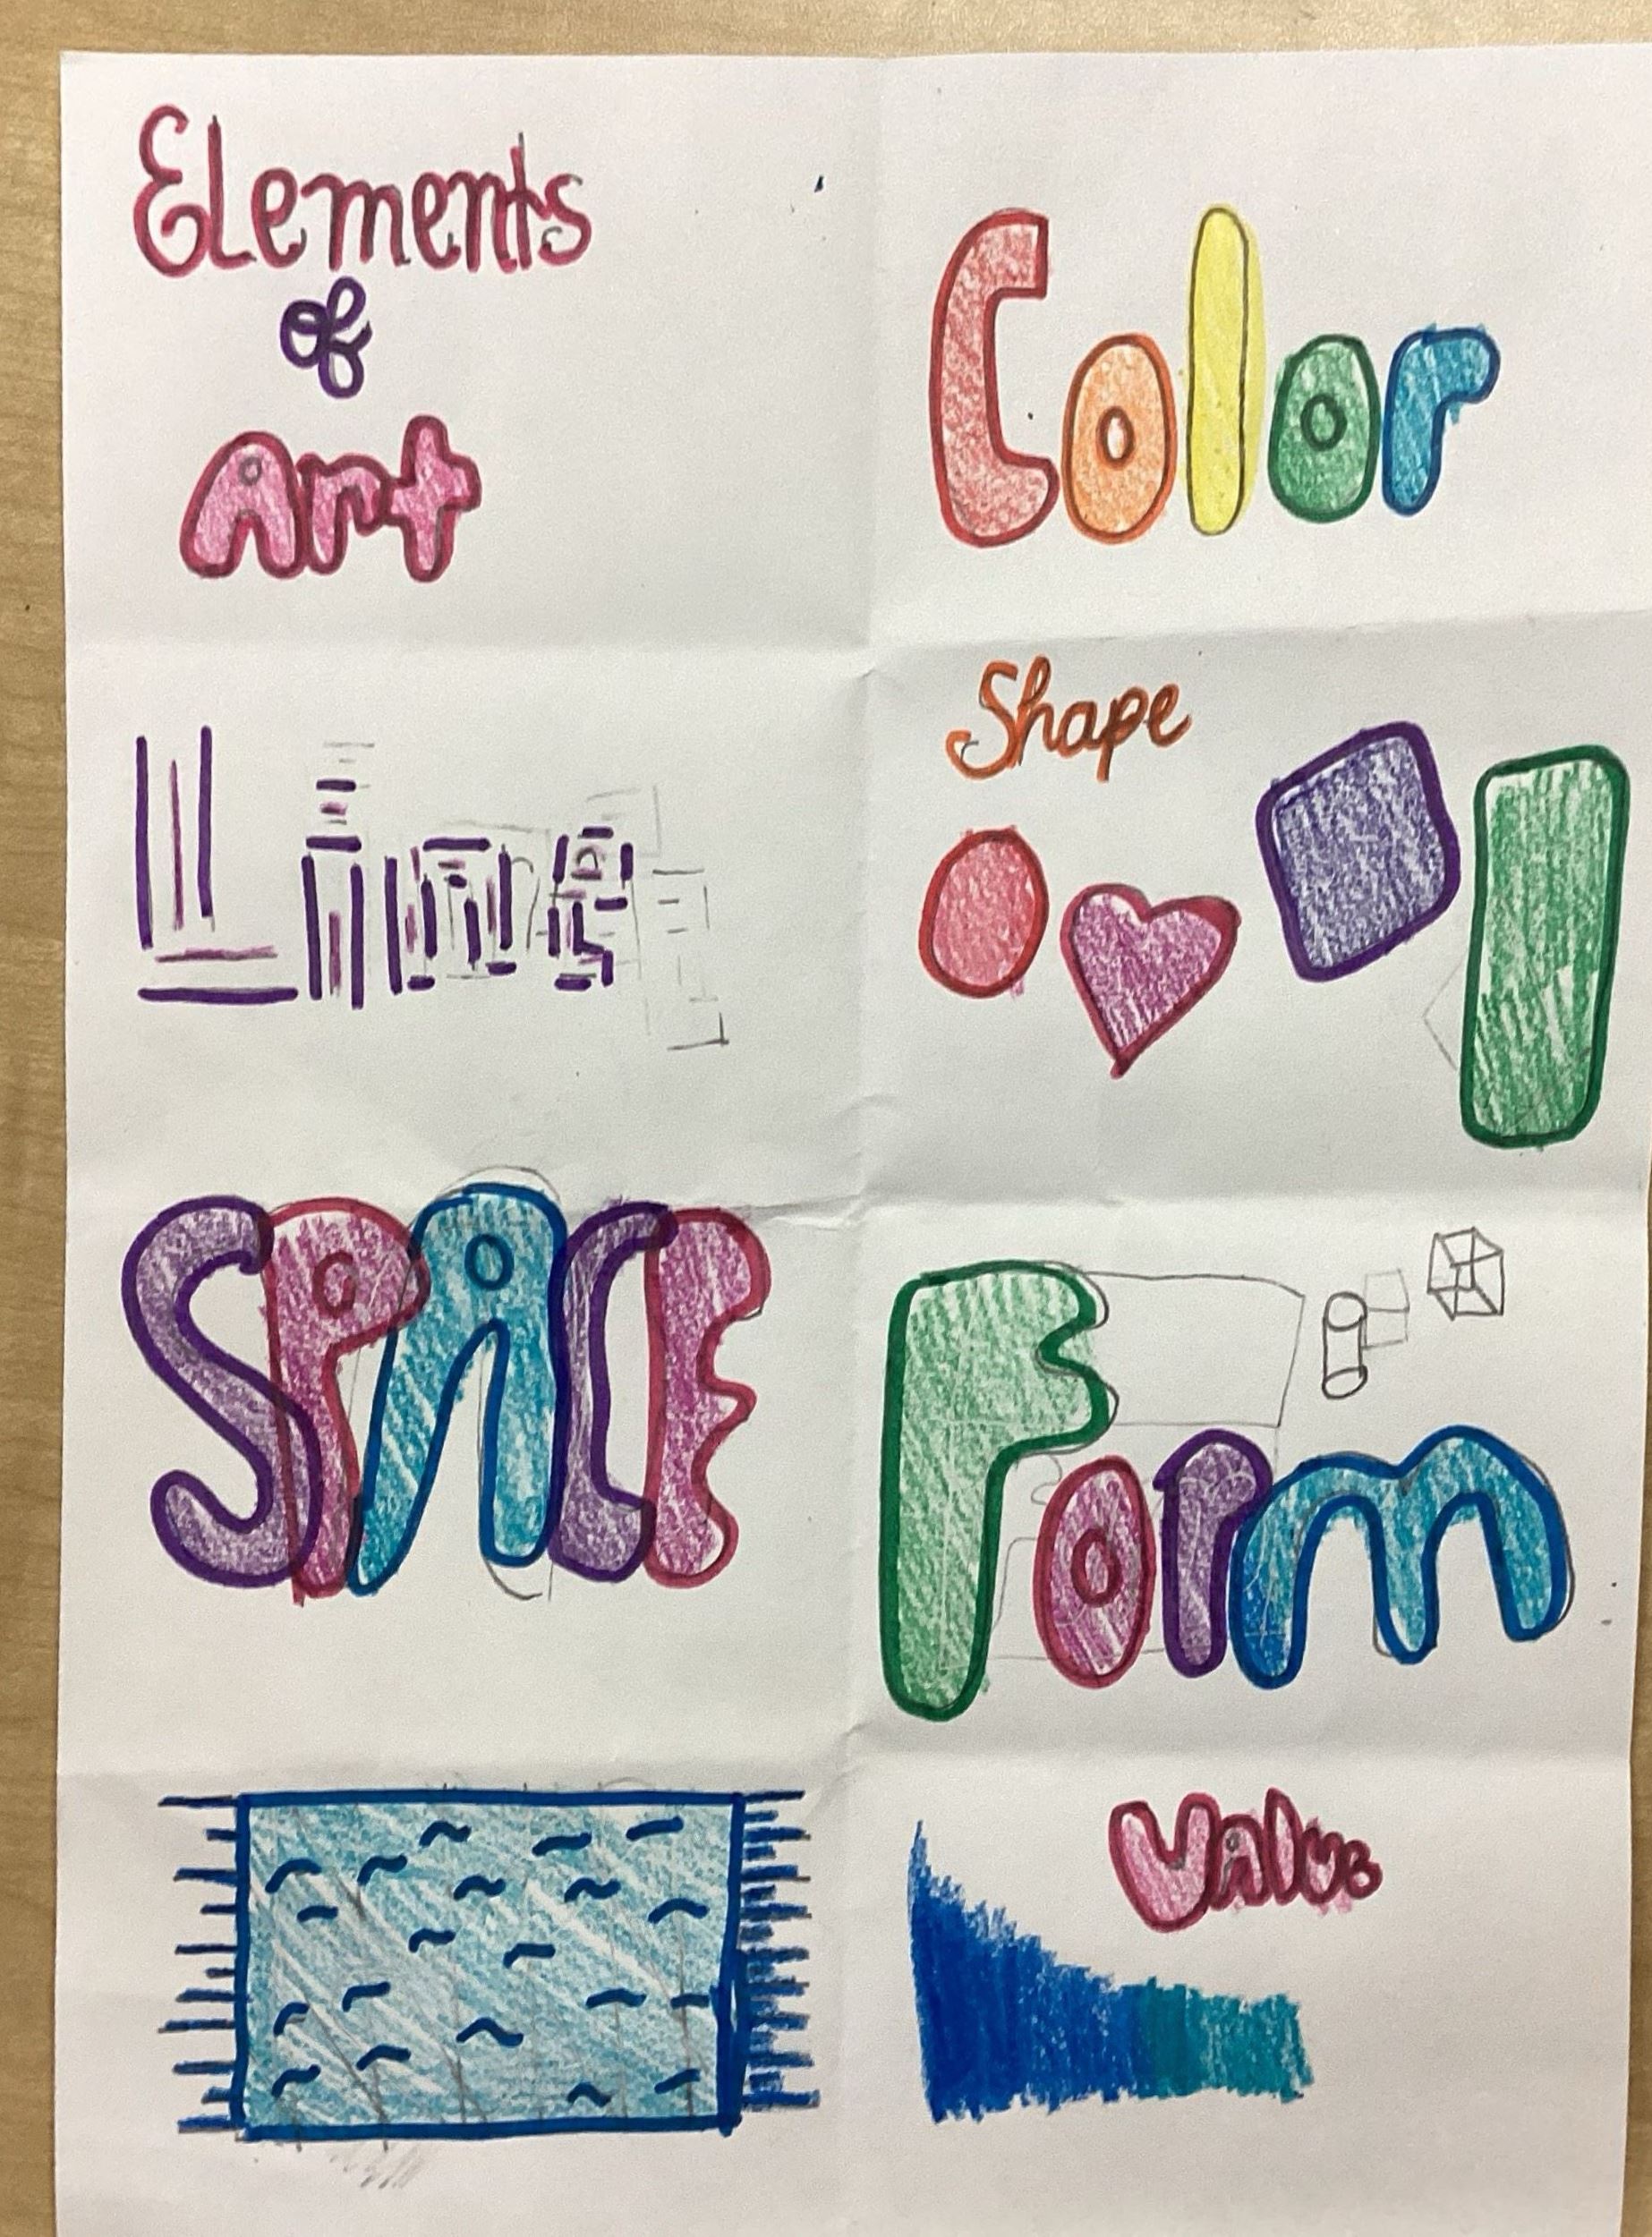 Elements
of
Art
Color
Line
Shape
SPACE
Form
Value